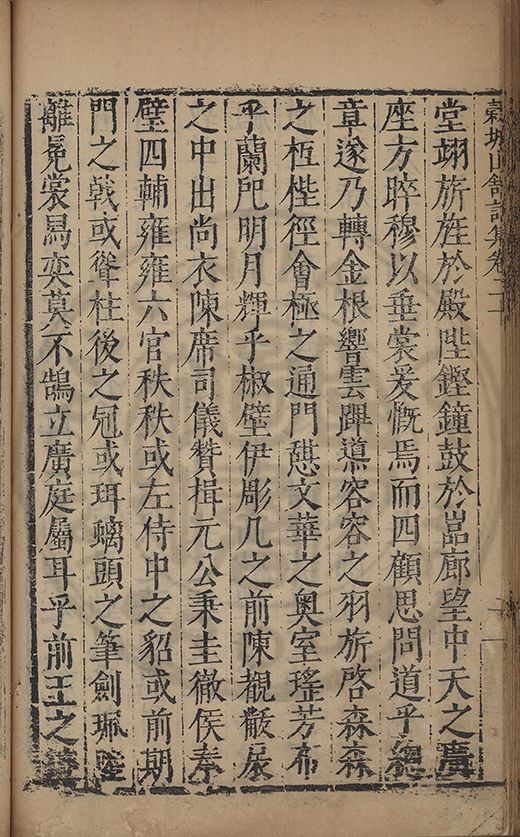 榖城山舘詩集卷
堂翊旂旌於殿陛鏗鐘鼓於嵓廊望中天之廣
座方晬穆以垂裳爰慨焉而四顧思問道乎總
章遂乃轉金根響雲蹕導容容之羽旂啓森森
之枑梐徑會極之通門憇文華之奥室瑤芳布
乎蘭戺明月輝乎椒壁伊彫几之前陳覩黻扆
之中出尚衣陳席司儀贊揖元公秉圭徹侯奉
璧四輔雍雍六官秩秩或左侍中之貂或前期
門之戟或聳柱後之冠或珥螭頭之筆劍珮陸
離冕裳舄奕莫不鵠立廣庭屬耳乎前王之